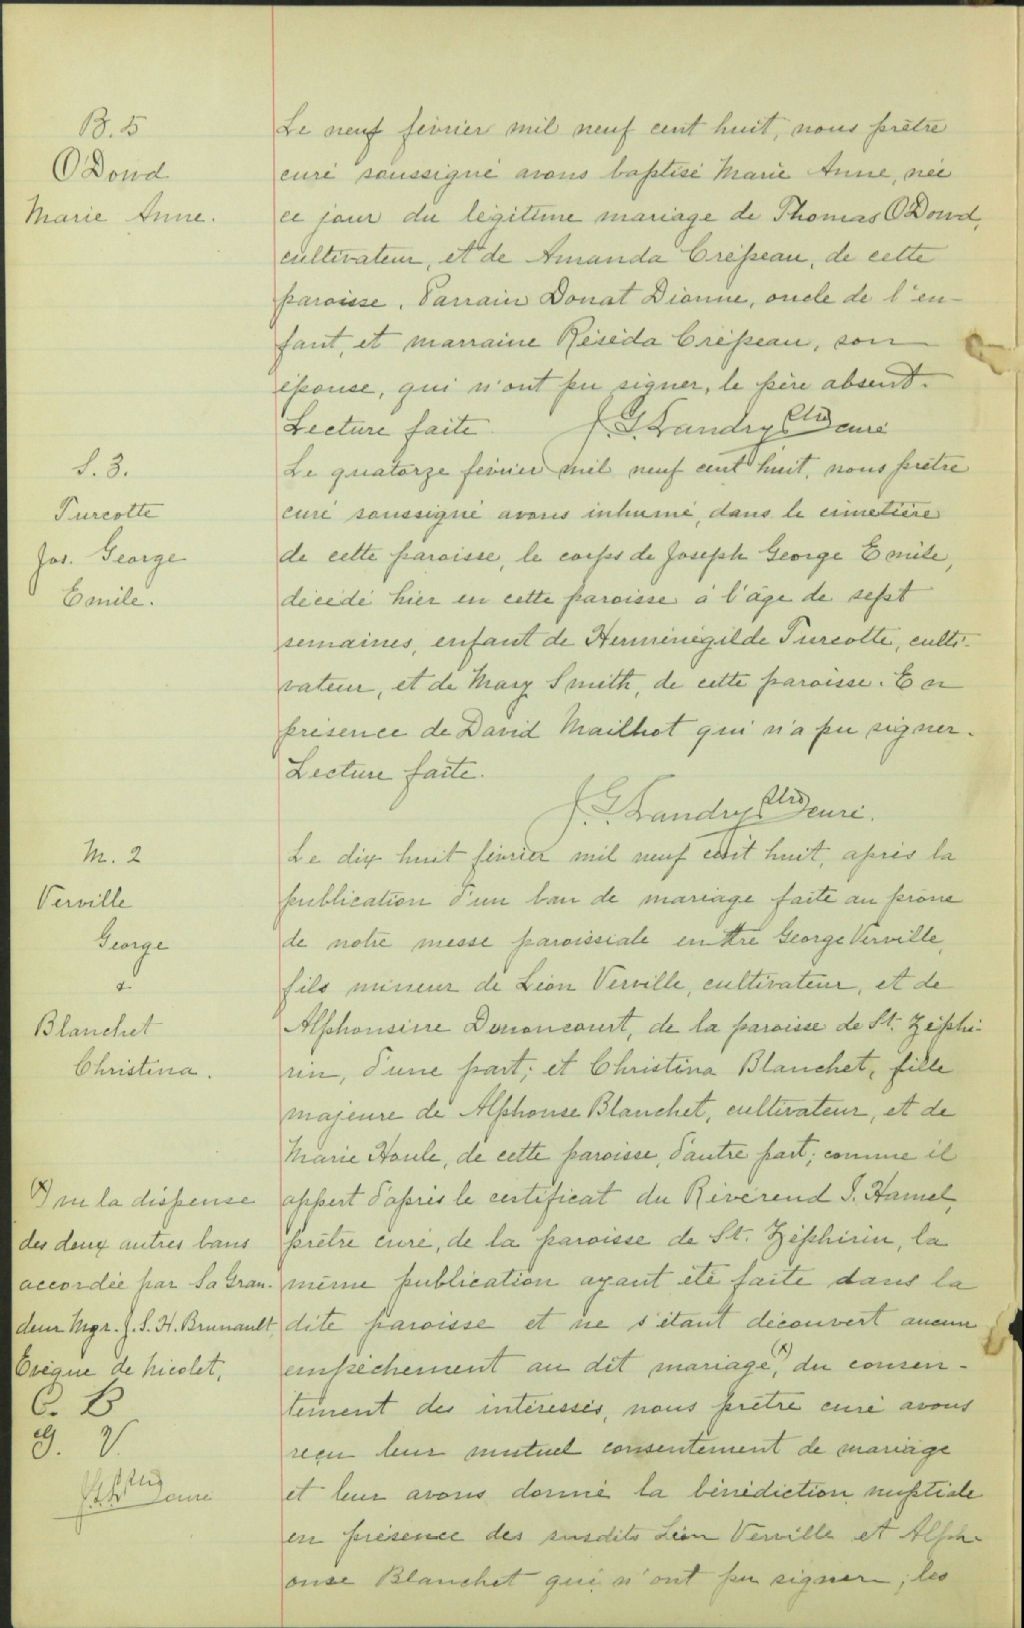 B. 5
O'Dowd
Marie Anne.
Le neuf février mil neuf cent huit, nous prêtre
curé soussigné avons baptisé Marie Anne, née
ce jour du légitime mariage de Thomas O'Dowd,
cultivateur, et de Amanda Crépeau, de cette
paroisse. Parrain Donat Dionne, oncle de l'en-
fant, et marraine Réséda Crépeau, son
épouse, qui n'ont pu signer, le père absent.
Lecture faite. J. G. Landry Ptre curé
S. 3.
Turcotte
Jos. George
Emile.
Le quatorze février mil neuf cent huit, nous prêtre
curé soussigné avons inhumé, dans le cimetière
de cette paroisse, le corps de Joseph George Emile,
décédé hier en cette paroisse à l'âge de sept
semaines, enfant de Herménégilde Turcotte, culti-
vateur, et de Mary Smith, de cette paroisse. En
présence de David Mailhot qui n'a pu signer.
Lecture faite.
J. G. Landry Ptre curé.
M. 2
Verville
George
&
Blanchet
Christina.
Le dix huit février mil neuf cent huit, après la
publication d'un ban de mariage faite au prône
de notre messe paroissiale entre George Verville,
fils mineur de Léon Verville, cultivateur, et de
Alphonsine Denoncourt, de la paroisse de St. Zéphi-
rin, d'une part; et Christina Blanchet, fille
majeure de Alphonse Blanchet, cultivateur, et de
Marie Houle, de cette paroisse, d'autre part; comme il
appert d'après le certificat du Révérend J. Hamel,
prêtre curé, de la paroisse de St. Zéphirin, la
même publication ayant été faite dans la
dite paroisse et ne s'étant découvert aucun
empêchement au dit mariage (x), du consen-
tement des intéressés, nous prêtre curé avons
reçu leur mutuel consentement de mariage
et leur avons donné la bénédiction nuptiale
en présence des susdits Léon Verville et Alph-
onse Blanchet qui n'ont pu signer; les
(x) vu la dispense
des deux autres bans
accordée par Sa Gran-
deur Mgr. J. S. H. Brunault,
Evêque de Nicolet,
C. B
G. V.
J. G. L. Ptre curé